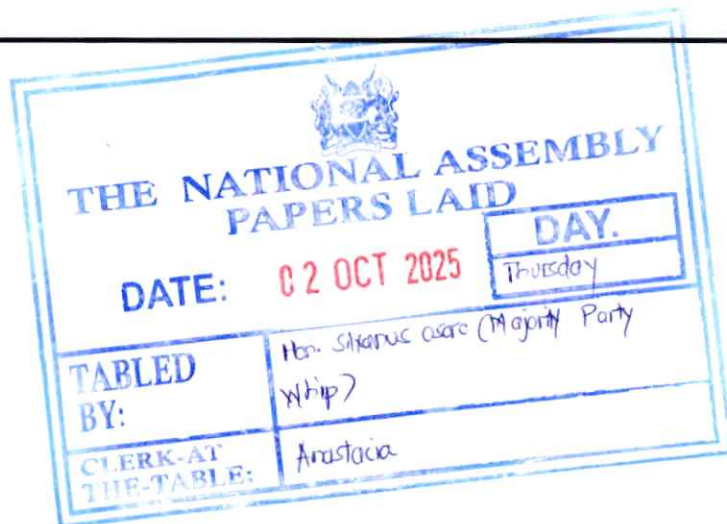 THE NATIONAL ASSEMBLY
PAPERS LAID
DATE: 02 OCT 2025
DAY.
Thursday
TABLED BY:
Hon. (Majority Party Whip)
CLERK-AT THE-TABLE:
Anastacia